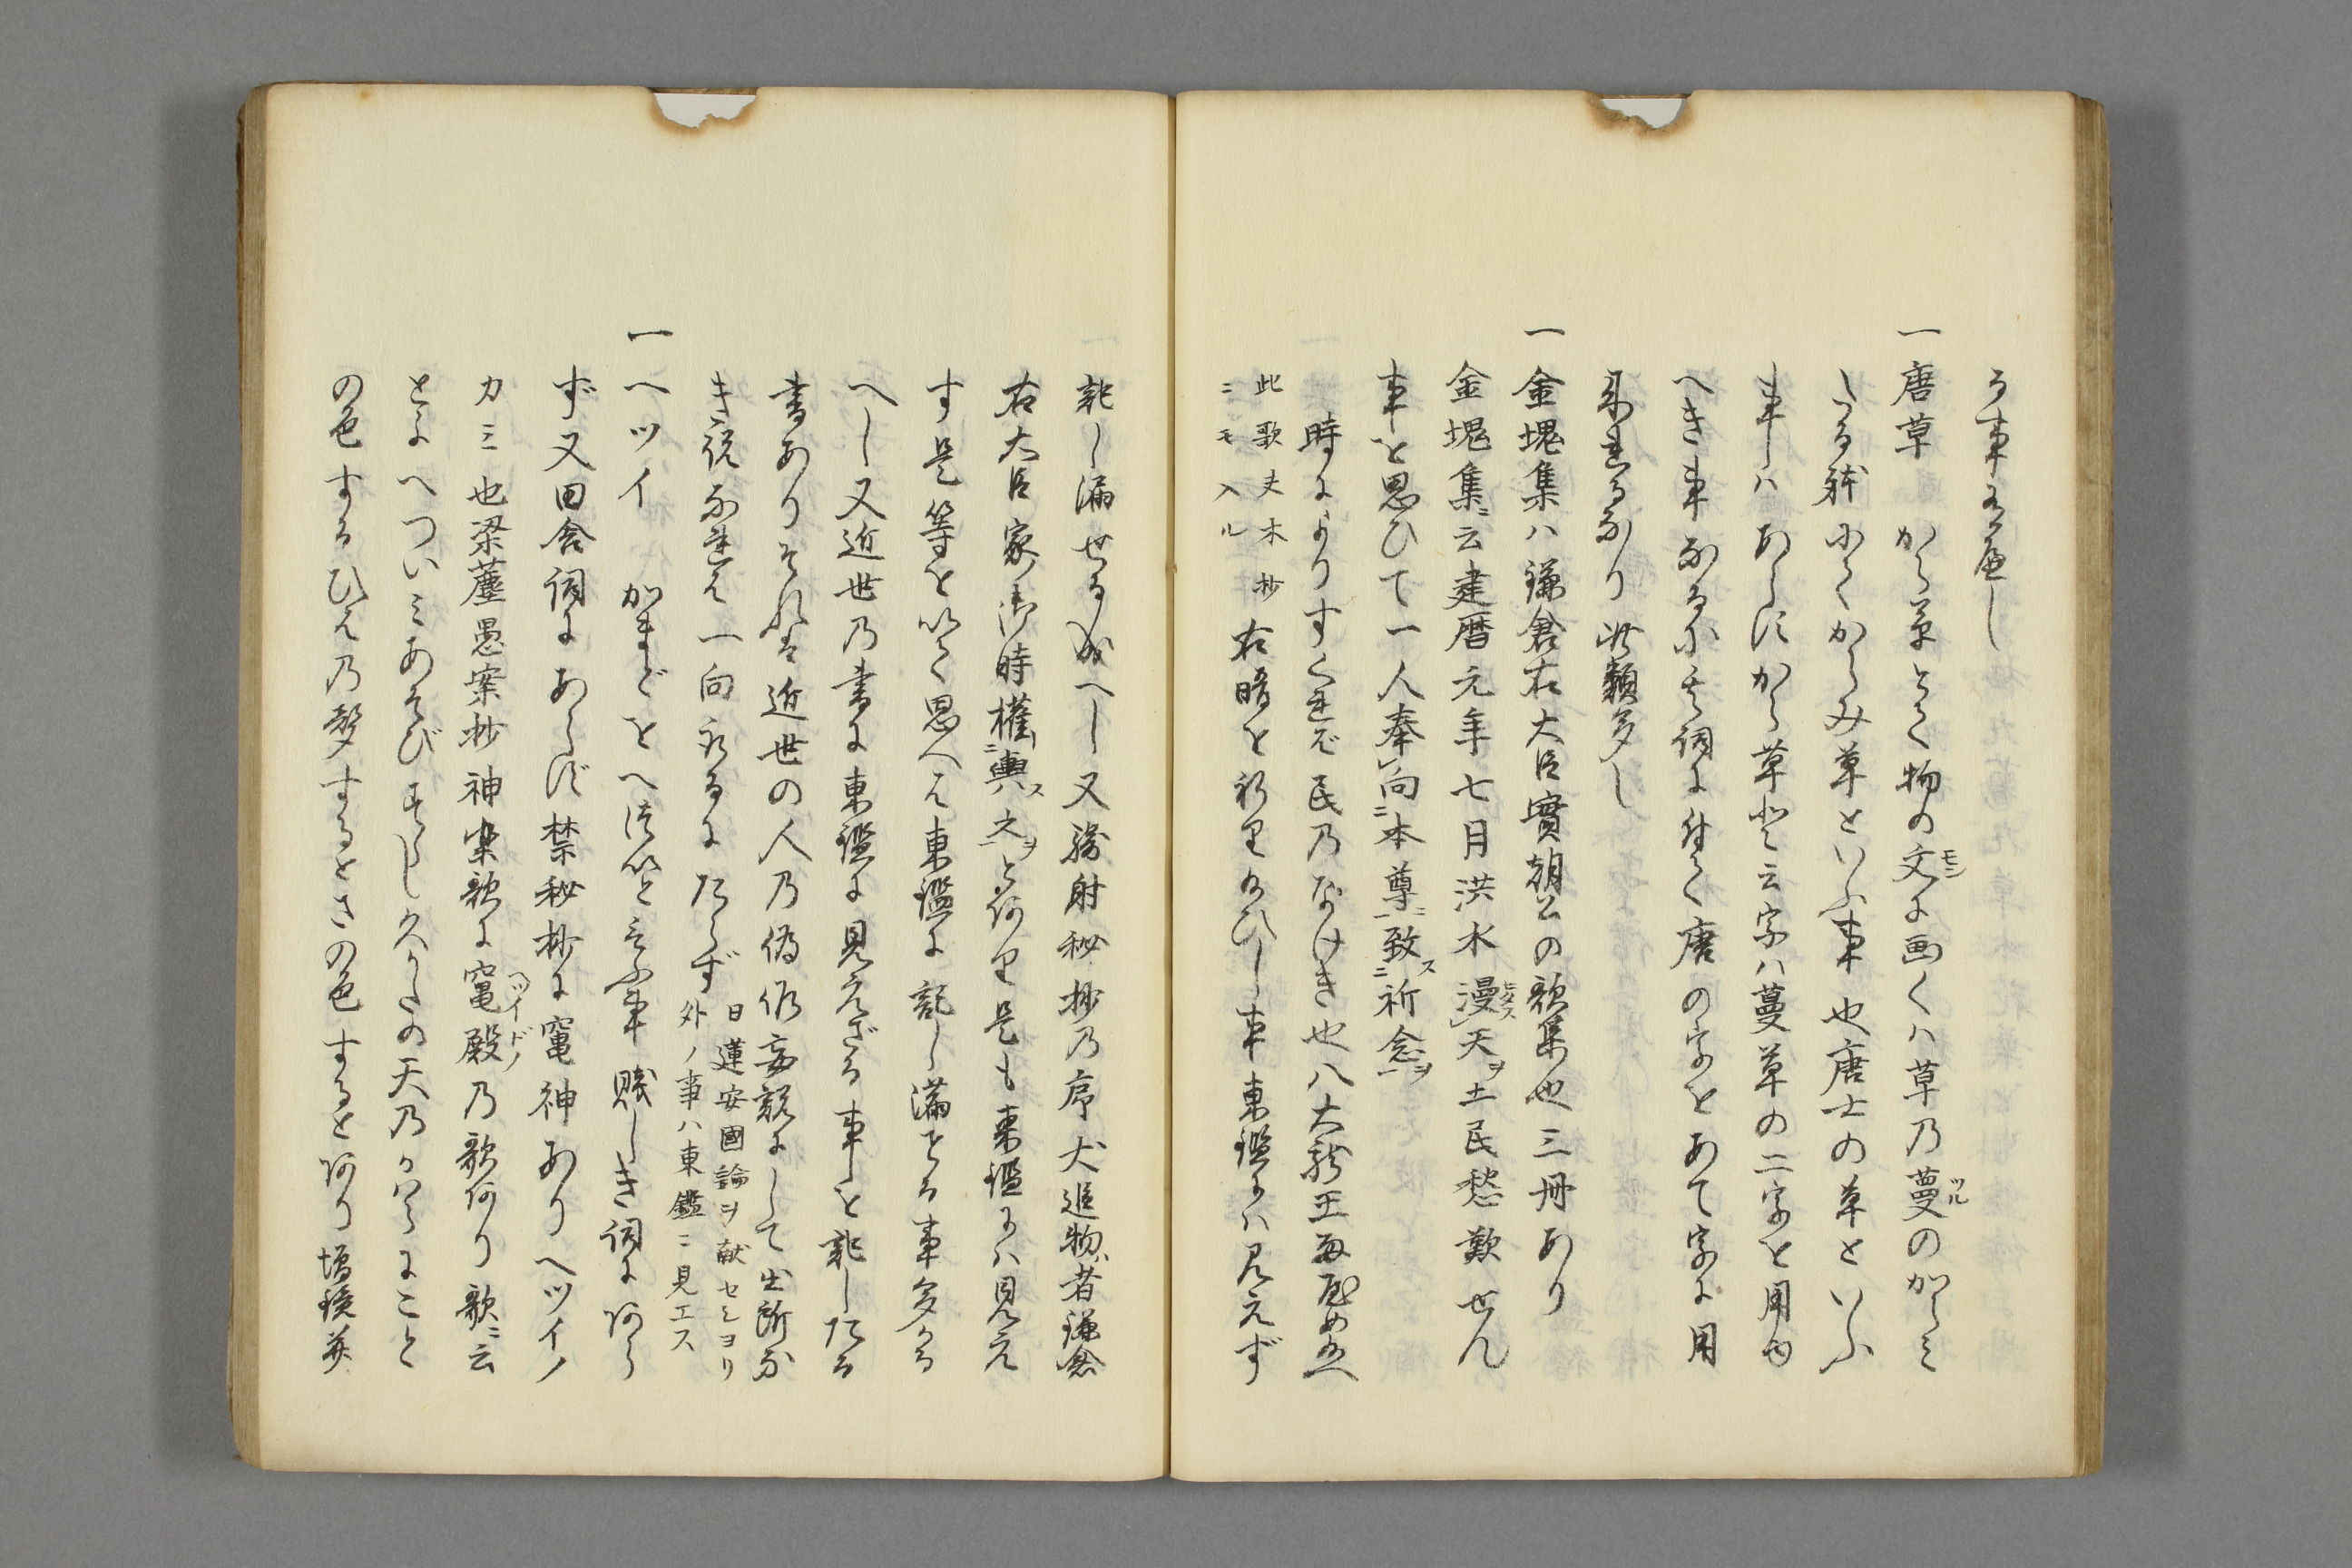 る事なるべし
一唐草 から草とて物の文に画くハ草乃蔓のからミ
たる躰にてからみ草といふ事也唐士の草といふ
事ハあらずから草と云字ハ蔓草の二字を用ゆ
へき事なるに其詞に付て唐の字をあて字に用
来れるなり此類多し
一金塊集ハ鎌倉右大臣實朝公の歌集也三冊あり
金塊集ニ云建暦元年七月洪水漫天ヲ土民愁歎せん
事を思ひて一人奉向ニ本尊ニ致ス祈念ヲ
時によりすくれば民乃なげき也八大龍王雨やめ給へ
此歌夫木抄ニモ入ル 右晴を祈り給ひし事東鑑にハ見えず
記し漏せる成へし又騎射秘抄乃序犬追物者鎌倉
右大臣家御時權輿ス之ヲと何り是も東鑑にハ見え
す是等を以て思へは東鑑に記し漏せる事多かる
へし又近世乃書に東鑑に見えざる事を記したる
書ありそれは近世の人乃偽作妄説にして出所な
き説なれは一向取るにたらず 日蓮安國論ヲ献セシヨリ外ノ事ハ東鑑ニ見エス
一ヘツイ かまどをへついと云ふ事賤しき詞にあら
ず又田舎詞にあらず禁秘抄に竃神ありヘツイノ
カミ也梁塵愚案抄神楽歌に竃殿乃歌何り歌ニ云
とよへついミあそびすらし久かたの天乃かはらにこと
の色するひは乃聲するとさの色すると何り